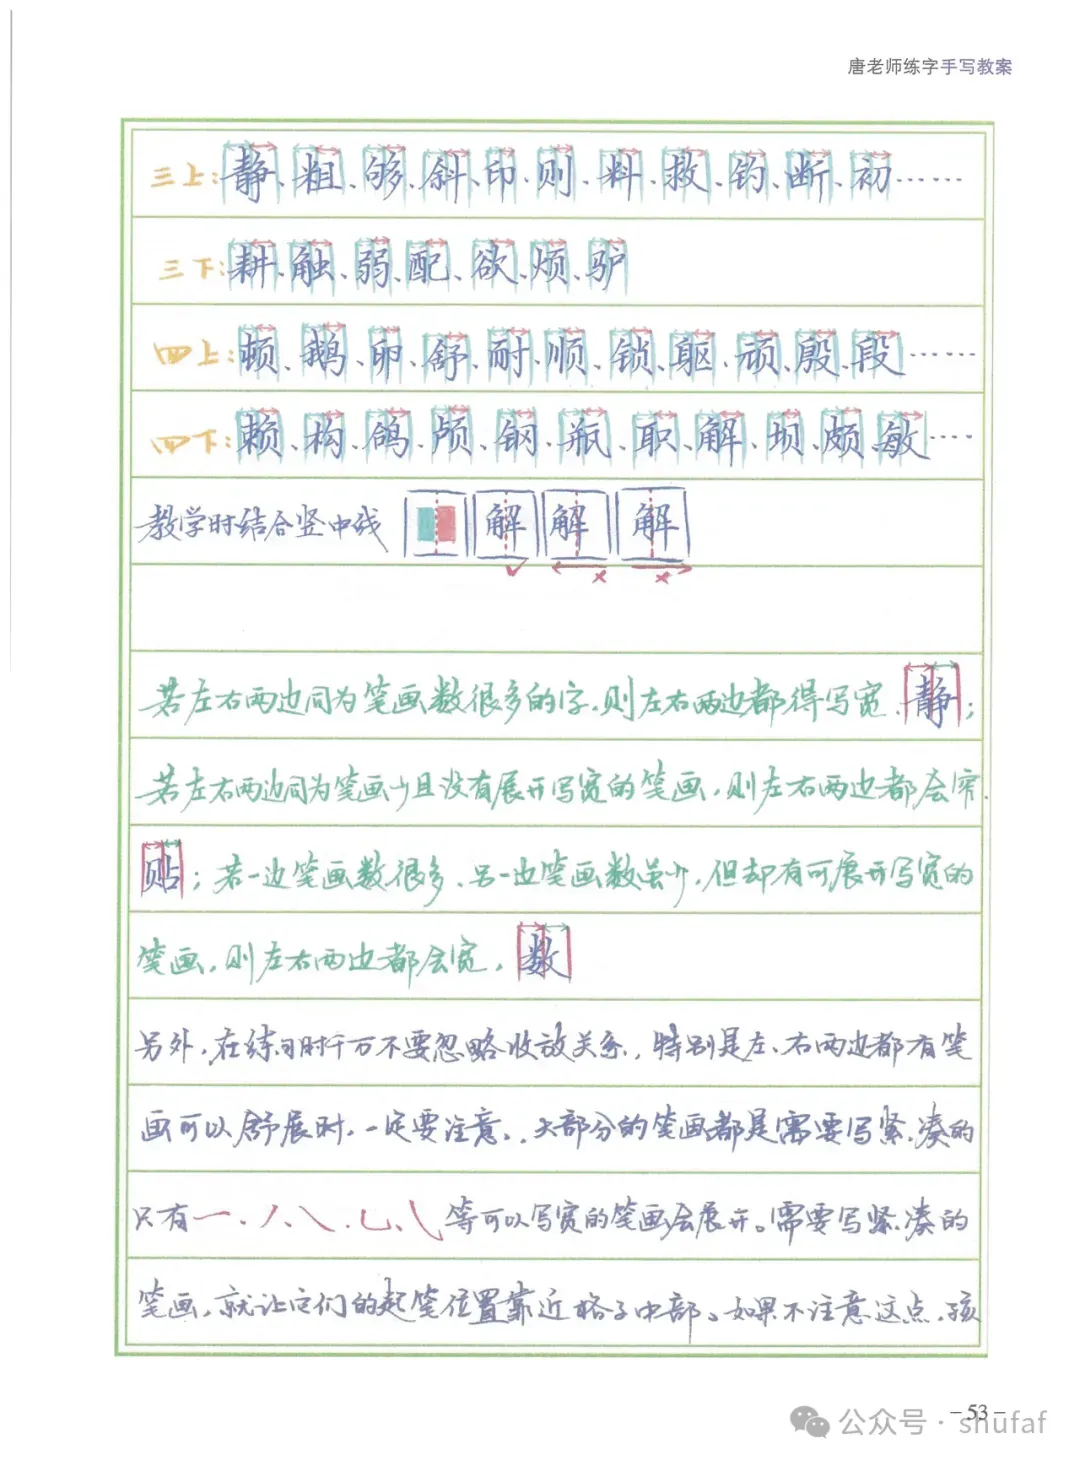 唐老师练字手写教案
三上:静、粗、够、斜、印、则、料、救、钓、断、初……
三下:耕、触、弱、配、欲、烦、驴
四上:顿、鹅、卵、舒、耐、顺、锁、躯、顽、殷、段……
四下:赖、构、鸽、颅、钢、瓶、职、解、坝、颇、敏……
教学时结合竖中线 解 解 解
若左右两边同为笔画数很多的字,则左右两边都得写宽、静;
若左右两边同为笔画少且没有展开写宽的笔画,则左右两边都会窄.
贴;若一边笔画数很多、另一边笔画数虽少,但却有可展开写宽的
笔画,则左右两边都会宽,数
另外,在练习时千万不要忽略收放关系,特别是左、右两边都有笔
画可以舒展时,一定要注意,大部分的笔画都是需要写紧凑的
只有一、丿、㇏、乚、㇂等可以写宽的笔画会展开。需要写紧凑的
笔画,就让它们的起笔位置靠近格子中部。如果不注意这点,孩
-53-
公众号·shufaf